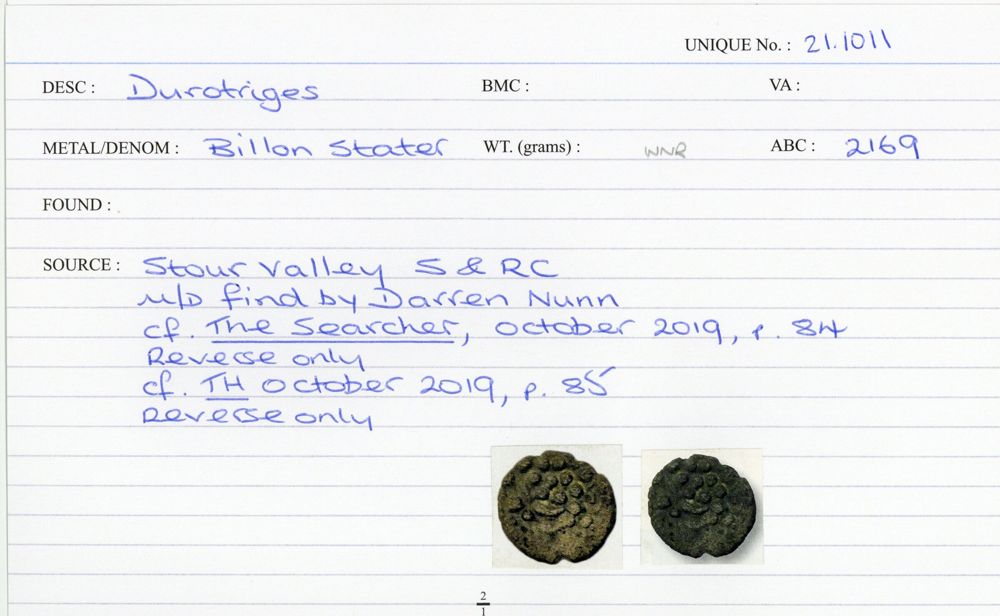 UNIQUE No. : 21.1011
DESC : Durotriges BMC : VA :
METAL/DENOM : Billon Stater WT. (grams) : WNR ABC : 2169
FOUND :
SOURCE : Stour Valley S & RC
M/D find by Darren Nunn
cf. The Searcher, October 2019, p. 84
Reverse only
cf. TH October 2019, p. 85
Reverse only
2
1